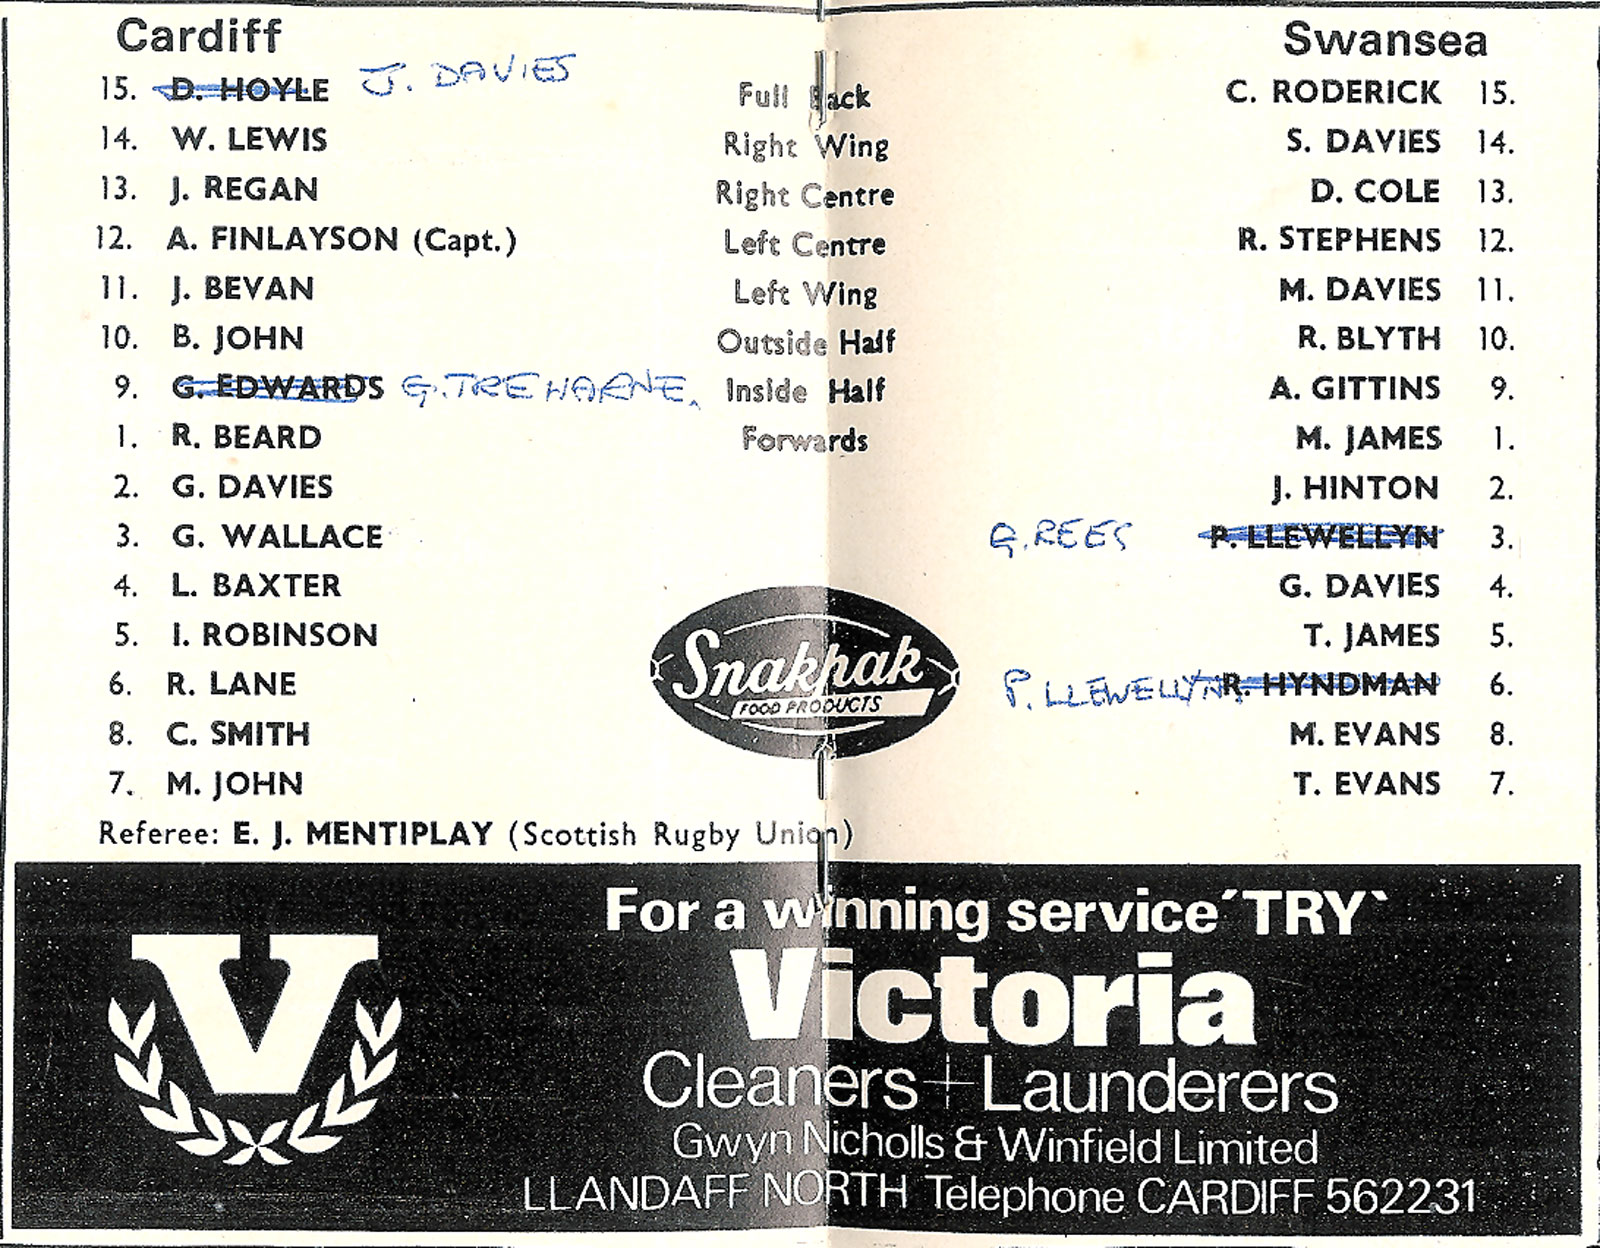 Cardiff Swansea
15. D. HOYLE J. DAVIES Full Back C. RODERICK 15.
14. W. LEWIS Right Wing S. DAVIES 14.
13. J. REGAN Right Centre D. COLE 13.
12. A. FINLAYSON (Capt.) Left Centre R. STEPHENS 12.
11. J. BEVAN Left Wing M. DAVIES 11.
10. B. JOHN Outside Half R. BLYTH 10.
9. G. EDWARDS G. TREHARNE. Inside Half A. GITTINS 9.
1. R. BEARD Forwards M. JAMES 1.
2. G. DAVIES J. HINTON 2.
3. G. WALLACE G. REES P. LLEWELLYN 3.
4. L. BAXTER G. DAVIES 4.
5. I. ROBINSON T. JAMES 5.
6. R. LANE P. LLEWELLYN. R. HYNDMAN 6.
8. C. SMITH M. EVANS 8.
7. M. JOHN T. EVANS 7.
Snakpak
FOOD PRODUCTS
Referee: E. J. MENTIPLAY (Scottish Rugby Union)
V
For a winning service ´TRY`
Victoria
Cleaners + Launderers
Gwyn Nicholls & Winfield Limited
LLANDAFF NORTH Telephone CARDIFF 562231